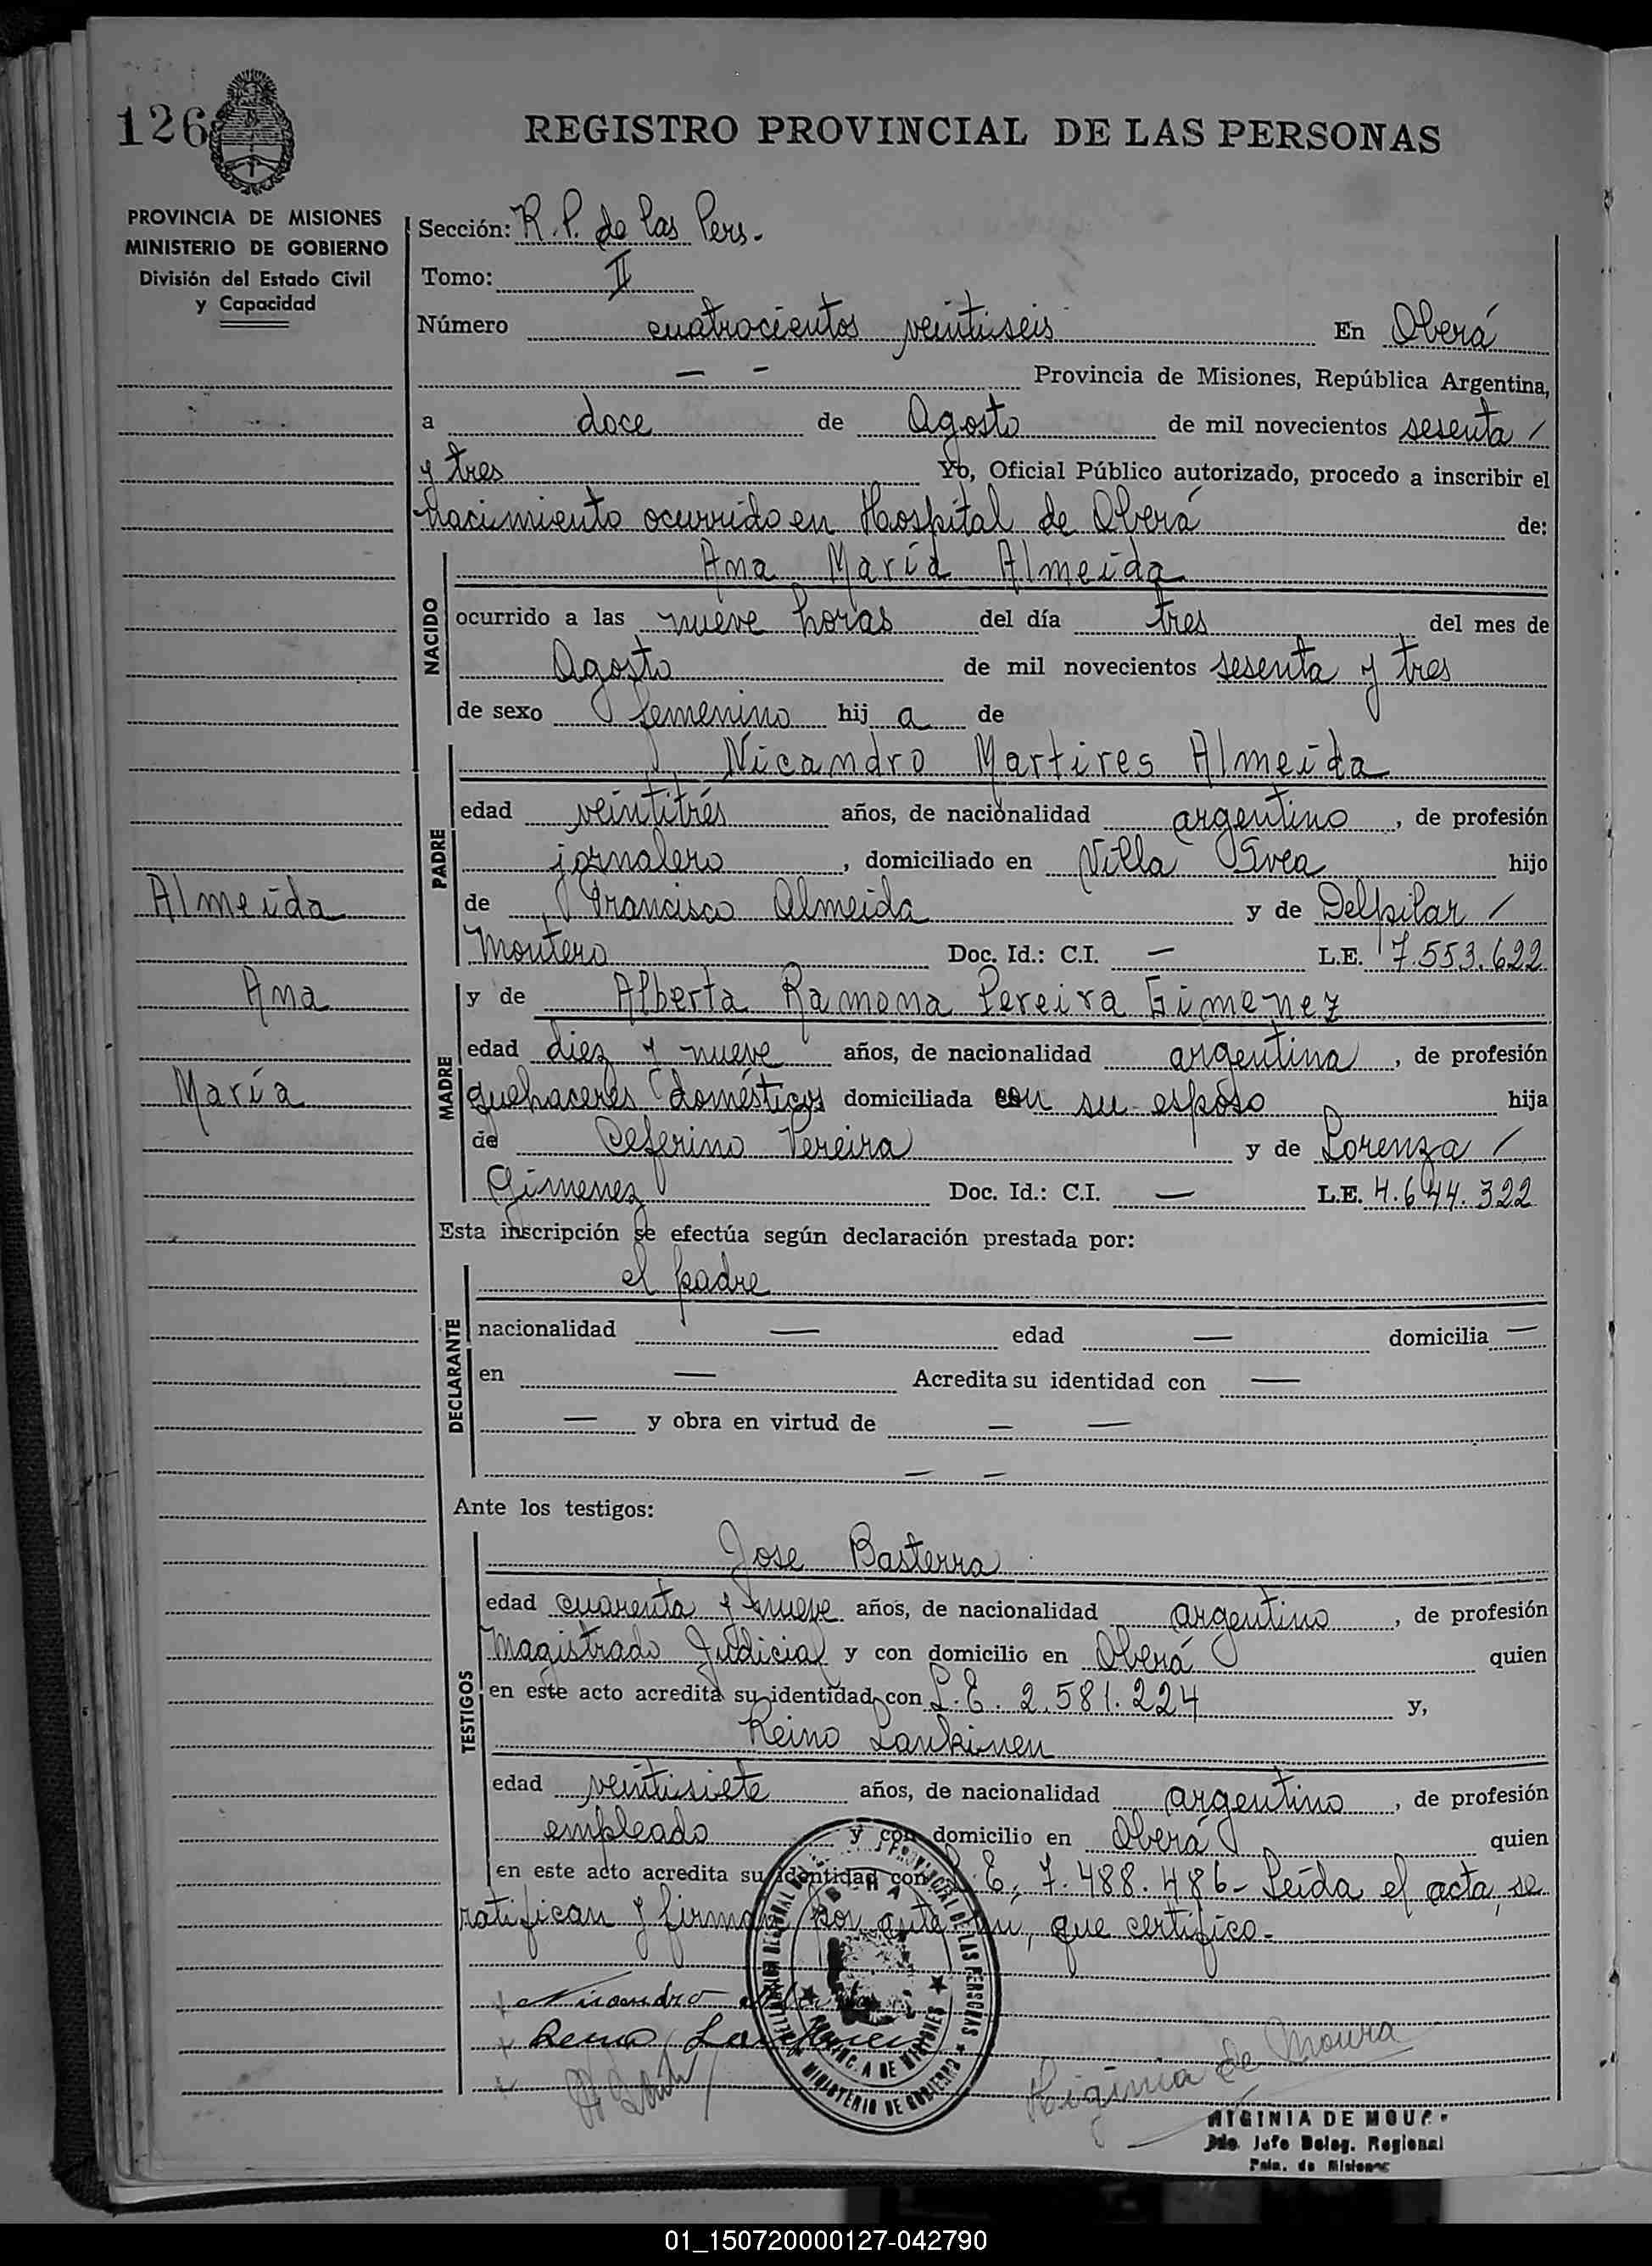 126
REGISTRO PROVINCIAL DE LAS PERSONAS
PROVINCIA DE MISIONES
MINISTERIO DE GOBIERNO
División del Estado Civil
y Capacidad
Sección: R.P. de las Pers.
Tomo: II
Número cuatrocientos veintiseis En Oberá
— - Provincia de Misiones, República Argentina,
a doce de Agosto de mil novecientos sesenta /
y tres Yo, Oficial Público autorizado, procedo a inscribir el
nacimiento ocurrido en Hospital de Oberá de:
NACIDO
Ana María Almeida
ocurrido a las nueve horas del día tres del mes de
Agosto de mil novecientos sesenta y tres
de sexo femenino hij a de
PADRE
Nicandro Martires Almeida
edad veintitrés años, de nacionalidad argentino, de profesión
jornalero, domiciliado en Villa Svea hijo
de Francisco Almeida y de Delpilar /
Montero Doc. Id.: C.I. — L.E. 7.553.622
Almeida
Ana
María
MADRE
y de Alberta Ramona Pereira Gimenez
edad diez y nueve años, de nacionalidad argentina, de profesión
quehaceres domésticos domiciliada con su esposo hija
de Ceferino Pereira y de Lorenza /
Gimenez Doc. Id.: C.I. — L.E. 4.644.322
Esta inscripción se efectúa según declaración prestada por:
DECLARANTE
el padre
nacionalidad — edad — domicilia —
en — Acredita su identidad con —
— y obra en virtud de — —
— —
Ante los testigos:
TESTIGOS
Jose Basterra
edad cuarenta y nueve años, de nacionalidad argentino, de profesión
Magistrado Judicial y con domicilio en Oberá quien
en este acto acredita su identidad con L.E. 2.581.224 y,
Reino Lankinen
edad veintisiete años, de nacionalidad argentino, de profesión
empleado y con domicilio en Oberá quien
en este acto acredita su identidad con L.E. 7.488.486- Leída el acta, se
ratifican y firman por ante mi, que certifico-
Nicandro
Reino Lankinen
Higinia de Moura
HIGINIA DE MOURA
Jefe Deleg. Regional
Pcia. de Misiones
PROVINCIAL DE LAS PERSONAS
OBERA
PROVINCIA DE MISIONES
MINISTERIO DE GOBIERNO
01_150720000127-042790